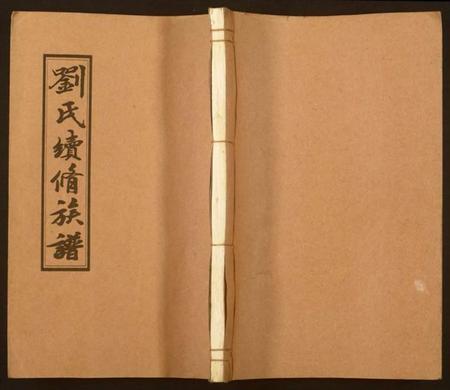 劉氏續脩族譜